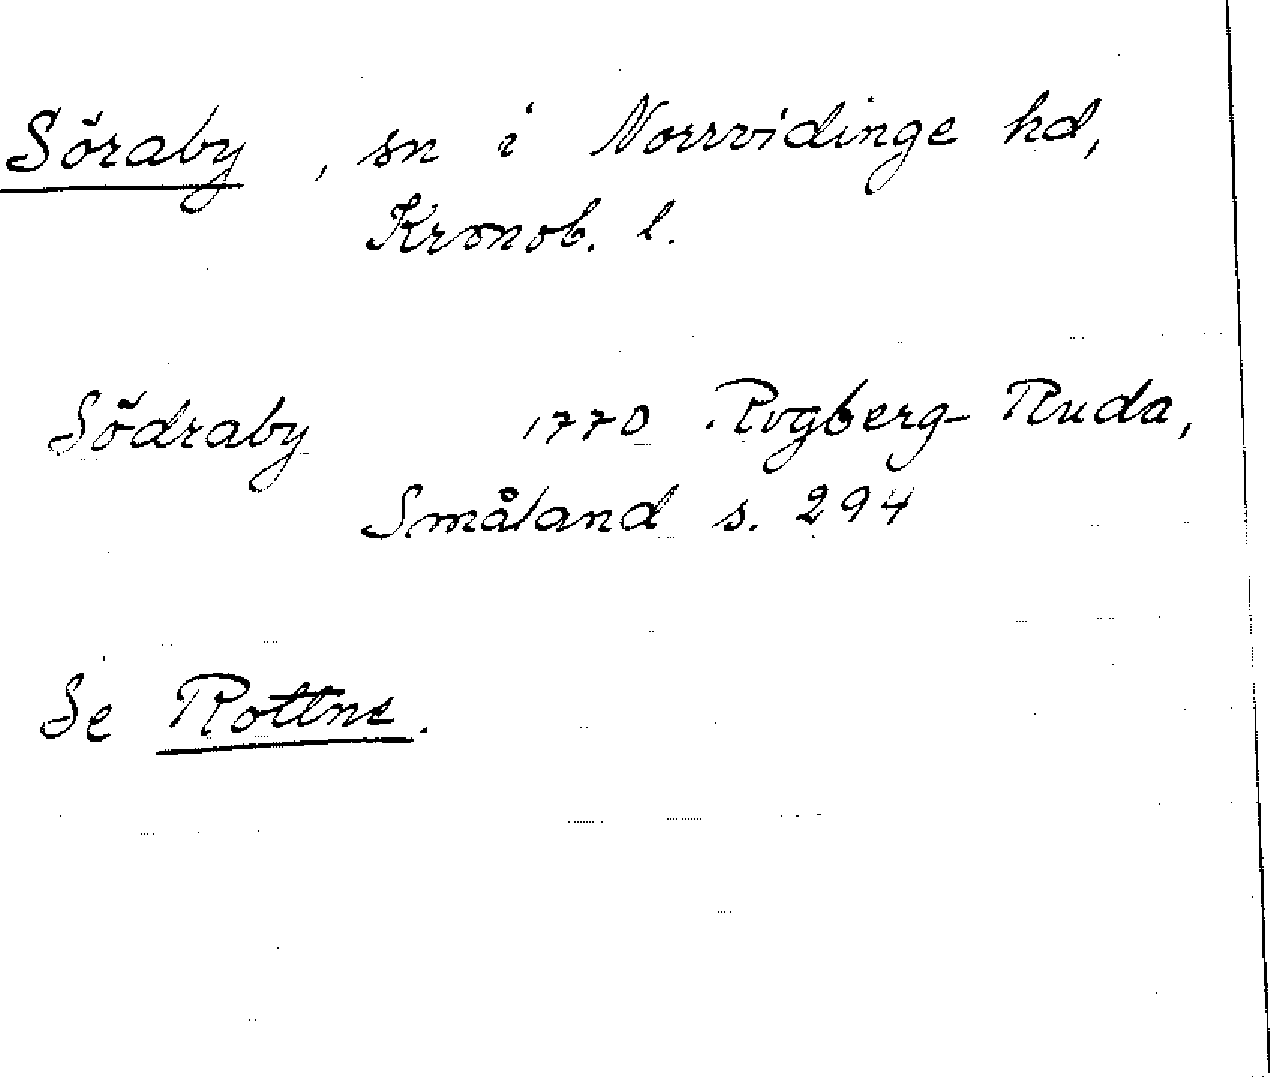 Söraby, sn i Norrvidinge hd,
Kronob. l.
Södraby 1770 Rogberg-Ruda,
Småland s. 294
Se Rottne.